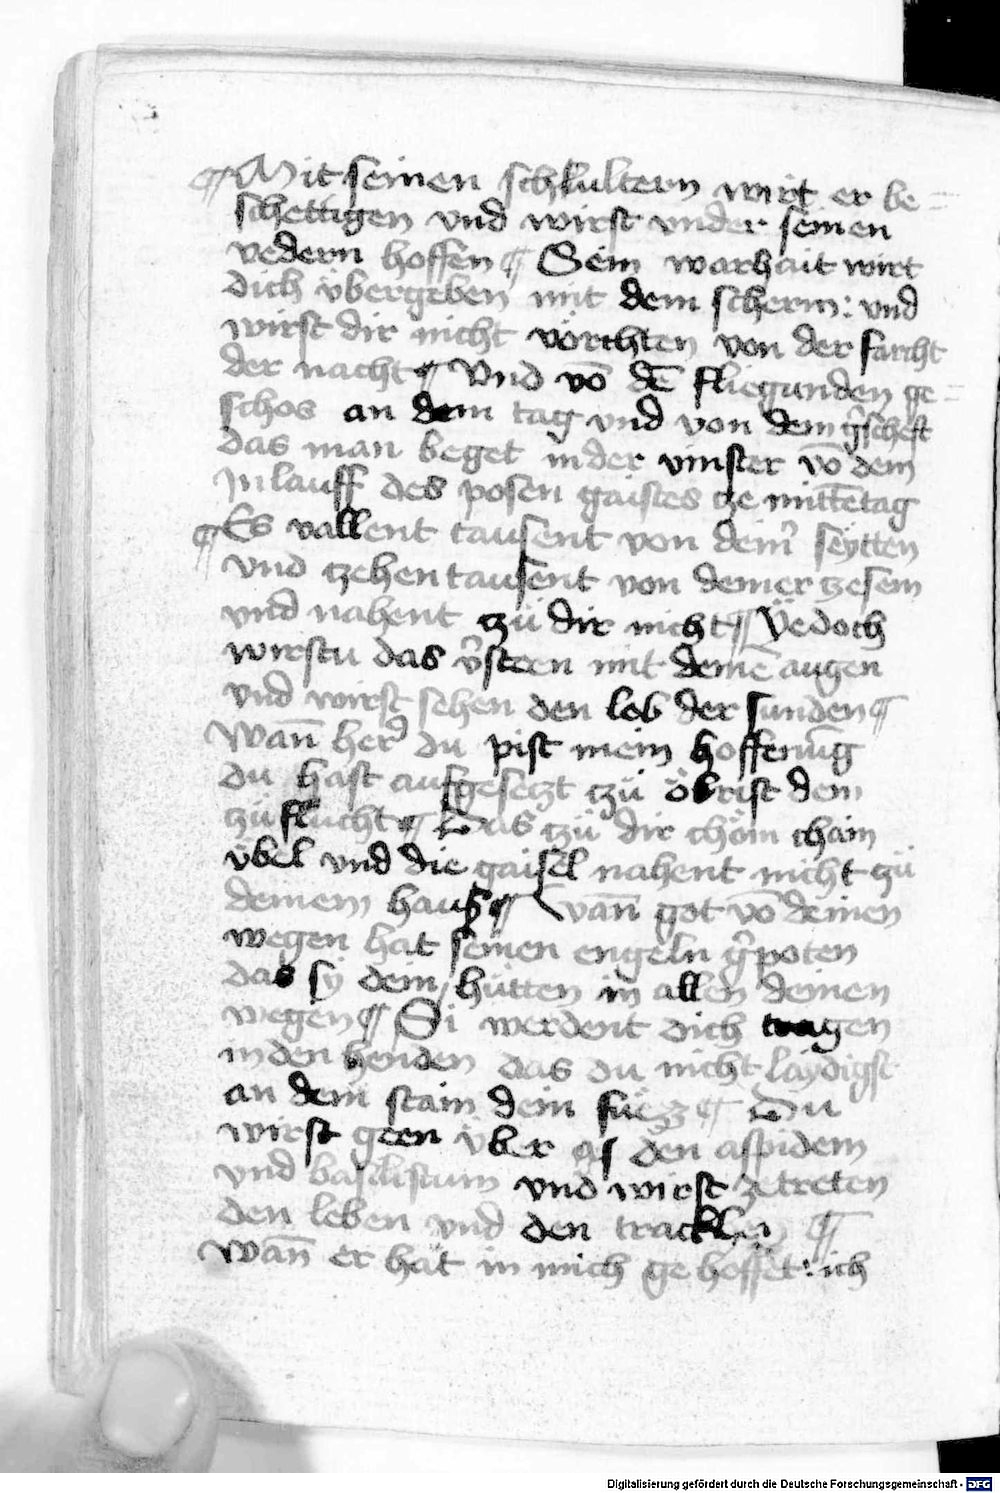 ¶ Mit seinen schlultern wirt er be=
schettigen vnd wirst vnder seinen
vedern hoffen ¶ Sein warhait wirt
dich vbergeben mit dem scherm: vnd
wirst dir nicht vörchten von der farcht
der nacht ¶ Vnd vō dē fliegunden ge=
schos an dem tag vnd von dem gscheft
das man beget in der vinster vō dem
In lauff des posen gaistes cze mittētag
¶ Es vallent tausent von deinr seytten
vnd czehen tausent von deiner zesem
vnd nahent czü dir nicht ¶ Yedoch
wirstu das v̉steen mit deinē augen
vnd wirst sehen den leb der sunden ¶
Wan̄ her du pist mein hoffenūg
du hast aufgesetzt czü öbrist dein
czüflucht ¶ Das czü dir chöm chain
übel vnd die gaisel nahent nicht czü
deinem haus ¶ Wan̄ got vō deinen
wegen hat seinen engeln g̉poten
das sÿ dein hütten in allen deinen
wegen ¶ Si werdent dich tragen
in den henden das du nicht laydigst
an dem stain dein füezz ¶ Du
wirst geen über den aspidem
vnd basiliscum vnd wirst zetreten
den leben vnd den tracken ¶
Wan̄ er hat in mich gehoffet: ich
Digitalisierung gefördert durch die Deutsche Forschungsgemeinschaft - DFG